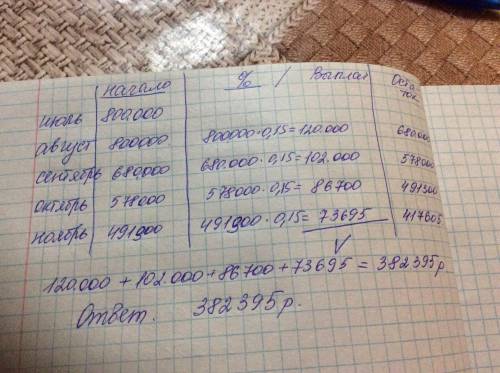 начало % / Выплат Оста-
ток
июль 800.000
август 800000 800000·0,15=120.000 680.000
сентябрь 680,000 680.000·0,15=102.000 578000
октябрь 578000 578000·0,15=86700 491300
ноябрь 491900 491900·0,15=73695 417605
120.000+102.000+86700+73695=382395р.
Ответ. 382395р.